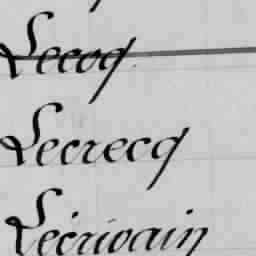 Lecoq
Lecrecq
Lécrivain